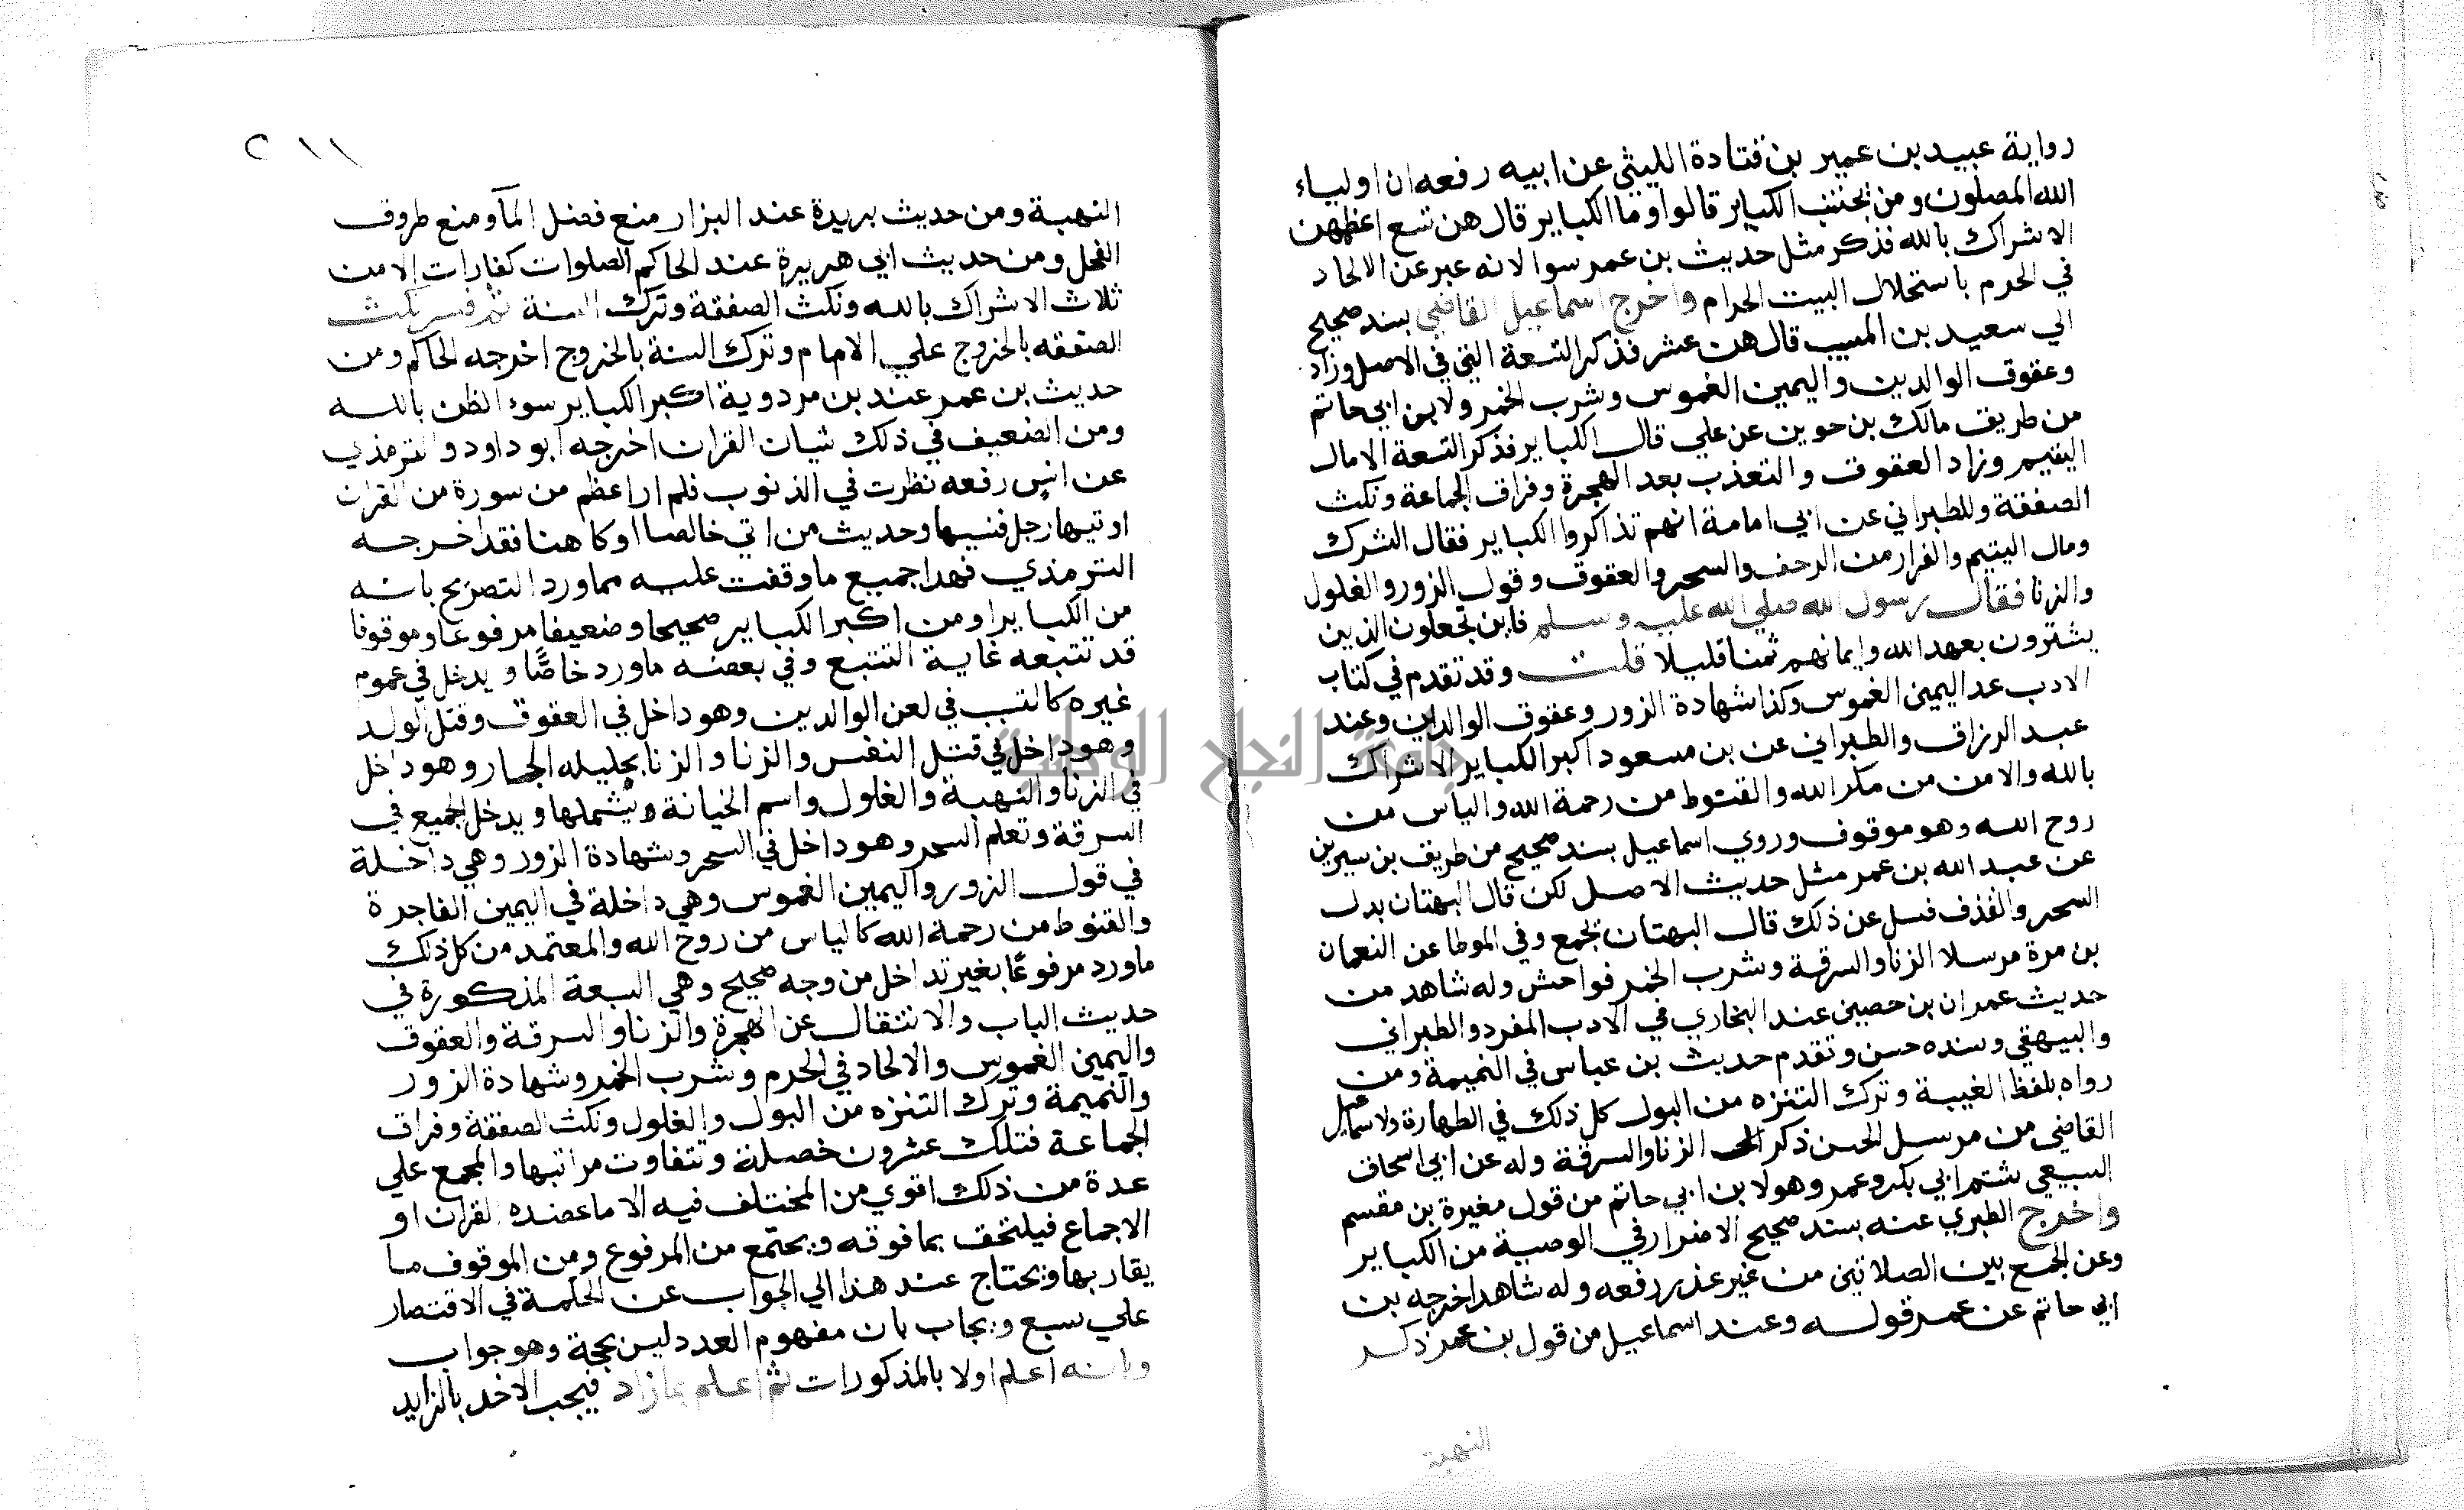 رواية عبيد بن عمير بن قتادة الليثي عن ابيه رفعه ان اولياء
الله المصلون ومن يجتنب الكباير قالوا وما الكباير قال هن تسع اعظمهن
الاشراك بالله فذكر مثل حديث بن عمر سوا الا نه عبر عن الالحاد
في الحرم باستحلال البيت الحرام واخرج اسماعيل القاضي بسند صحيح
الي سعيد بن المسيب قال هن عشر فذكر التسعة التي في الاصل وزاد
وعقوق الوالدين واليمين الغموس وشرب الخمر ولابن ابي حاتم
من طريق مالك بن حوين عن علي قال الكباير فذكر التسعة الا مال
اليتيم وزاد العقوق والتعذب بعد الهجرة وفراق الجماعة ونكث
الصفقة وللطبراني عن ابي امامة انهم تذاكروا الكباير فقال الشرك
ومال اليتيم والفرار من الزحف والسحر والعقوق وقول الزور والغلول
والزنا فقال رسول الله صلي الله عليه وسلم فاين تجعلون الذين
يشترون بعهد الله وايمانهم ثمنا قليلا قلت وقد تقدم في كتاب
الادب عد اليمين الغموس وكذا شهادة الزور وعقوق الوالدين وعند
عبد الرزاق والطبراني عن بن مسعود اكبر الكباير الاشراك
بالله والامن من مكر الله والقنوط من رحمة الله والياس من
روح الله وهو موقوف وروي اسماعيل بسند صحيح من طريق بن سيرين
عن عبد الله بن عمر مثل حديث الاصل لكن قال البهتان بدل
السحر والقذف فسل عن ذلك قال البهتان يجمع وفي الموطا عن النعمان
بن مرة مرسلا الزنا والسرقة وشرب الخمر فواحش وله شاهد من
حديث عمران بن حصين عند البخاري في الادب المفرد والطبراني
والبيهقي وسنده حسن وتقدم حديث بن عباس في النميمة ومن
رواه بلفظ الغيبة وترك التنزه من البول كل ذلك في الطهارة ولاسماعيل
القاضي من مرسل الحسن ذكر الزنا والسرقة وله عن ابي اسحاق
السبيعي شتم ابي بكر وعمر وهو لابن ابي حاتم من قول مغيرة بن مقسم
واخرج الطبري عنه بسند صحيح الاضرار في الوصية من الكباير
وعن الجمع بين الصلاتين من غير عذر رفعه وله شاهد اخرجه بن
ابي حاتم عن عمر قوله وعند اسماعيل من قول بن عمر ذكر
النهبة
٢١١
النهبة ومن حديث بريدة عند البزار منع فضل المآ ومنع طروق
الفحل ومن حديث ابي هريرة عند الحاكم الصلوات كفارات الا من
ثلاث الاشراك بالله ونكث الصفقة وترك السنة ثم فسر نكث
الصفقه بالخروج علي الامام وترك السنة بالخروج اخرجه الحاكم ومن
حديث بن عمر عند بن مردوية اكبر الكباير سوء الظن بالله
ومن الضعيف في ذلك نسيان القران اخرجه ابو داود والترمذي
عن انس رفعه نظرت في الذنوب فلم ار اعظم من سورة من القران
اوتيها رجل فنسيها وحديث من اتي خالصا او كاهنا فقد اخرجه
الترمذي فهدا جميع ما وقفت عليه مما ورد التصريح بانه
من الكباير او من اكبر الكباير صحيحا وضعيفا مرفوعا وموقوفا
قد تتبعه غاية التتبع وفي بعضه ما ورد خاصًّا ويدخل في عموم
غيره كالتسب في لعن الوالدين وهو داخل في العقوق وقتل الولد
وهو داخل في قتل النفس والزنا والزنا بحليله الجار وهو داخل
في الزنا والنهبة والغلول واسم الخيانة ويشملها ويدخل الجميع في
السرقة وتعلم السحر وهو داخل في السحر وشهادة الزور وهي داخلة
في قول الزور واليمين الغموس وهي داخلة في اليمين الفاجرة
والقنوط من رحمة الله كالياس من روح الله والمعتمد من كل ذلك
ما ورد مرفوعًا بغير تداخل من وجه صحيح وهي السبعة المذكورة في
حديث الباب والانتقال عن الهجرة والزنا والسرقة والعقوق
واليمين الغموس والالحاد في الحرم وشرب الخمر وشهادة الزور
والنميمة وترك التنزه من البول والغلول ونكث الصفقة وفراق
الجماعة فتلك عشرون خصلة وتتفاوت مراتبها والمجمع علي
عدة من ذلك اقوي من المختلف فيه الا ما عضده القران او
الاجماع فيلتحق بما فوقه ويجتمع من المرفوع ومن الموقوف ما
يقاربها ويحتاج عند هذا الي الجواب عن الحكمة في الاقتصار
علي سبع ويجاب بان مفهوم العدد ليس بحجة وهو جواب
وبانه اعلم اولا بالمذكورات ثم اعلم بما زاد فيجب الاخد بالزايد
جامعة النجاح الوطنية